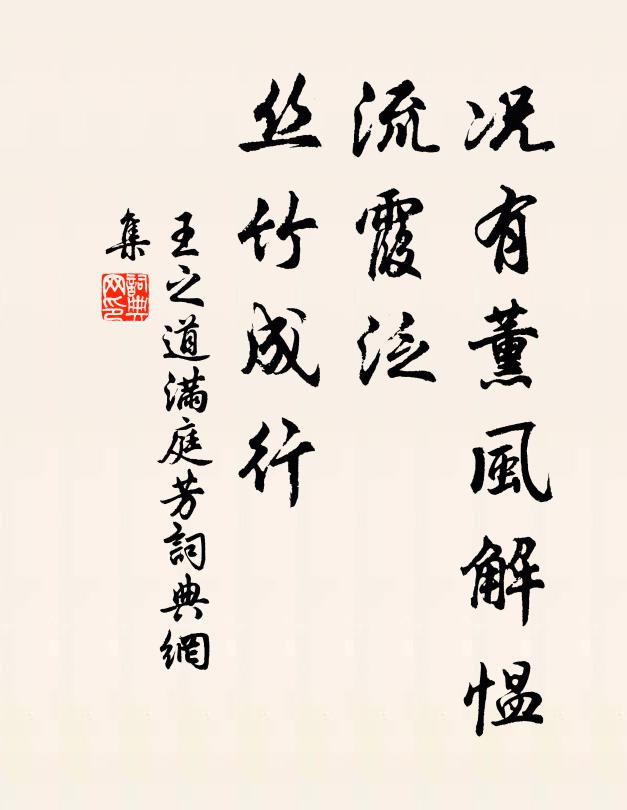 况有薰風解愠
流霞泛
丝竹成行
王之道滿庭芳詞典網
集
詞典
网印